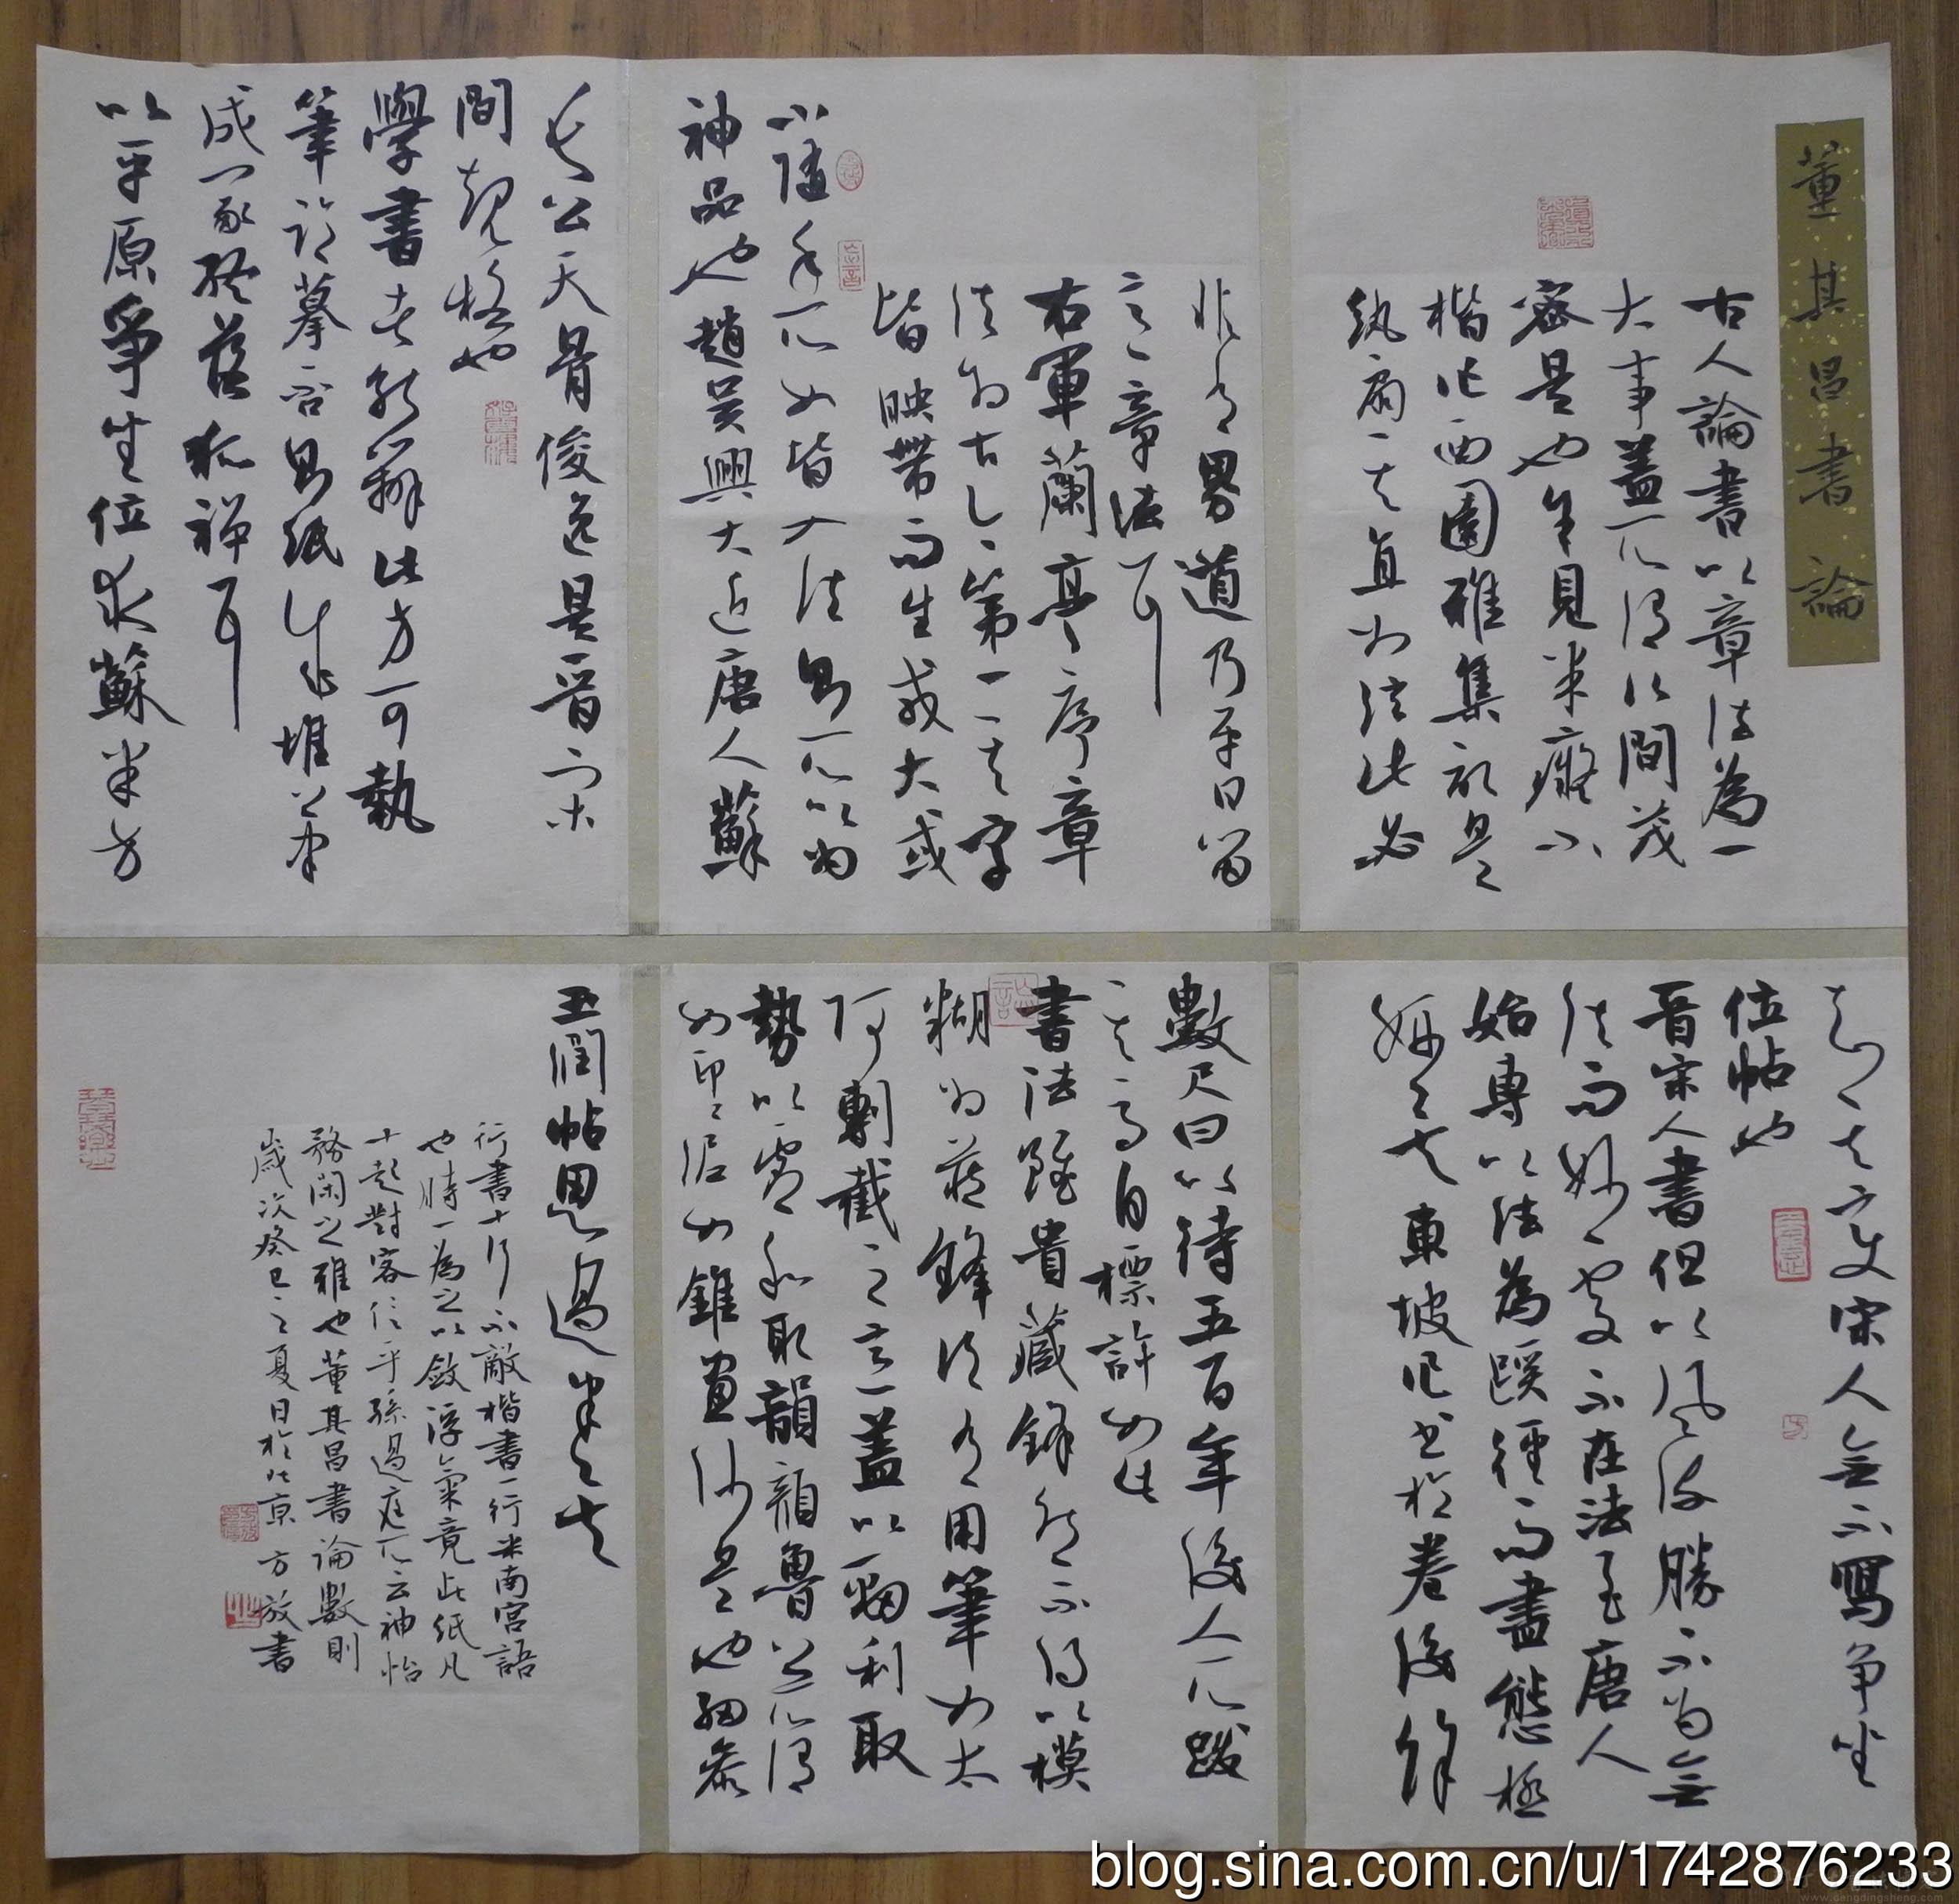 董其昌書論
古人論書以章法為一
大事蓋所謂行間茂
密是也余見米癡小
楷作西園雅集圖是
紈扇其直如弦此必
非有異道乃平日留
意章法耳
右軍蘭亭序章
法為古今第一其字
皆映帶而生或大或
小隨手所如皆入法則所以為
神品也趙吳興大近唐人蘇
長公天骨俊逸是晉宋
間規格也
學書者能辨此方可執
筆臨摹否則紙成堆筆
成冢終落狐禪耳
以平原爭坐位求蘇米方
知其變宋人無不寫爭坐
位帖也
晉宋人書但以風流勝不為無
法而妙處不在法至唐人
始專以法為蹊徑而盡態極
妍矣東坡作書於卷後餘
數尺曰以待五百年後人作跋
其高自標許如此
書法雖貴藏鋒然不得以模
糊為藏鋒須有用筆如太
阿剸截之意蓋以勁利取
勢以虛和取韻顏魯公所謂
如印印泥如錐畫沙是也細參
玉潤帖思過半矣
行書十行不敵楷書一行米南宮語
也時一為之以斂浮氣竟此紙凡
十起對客信乎孫過庭所云神怡
務閑之雅也董其昌書論數則
歲次癸巳之夏日於北京 方放書
blog.sina.com.cn/u/1742876233